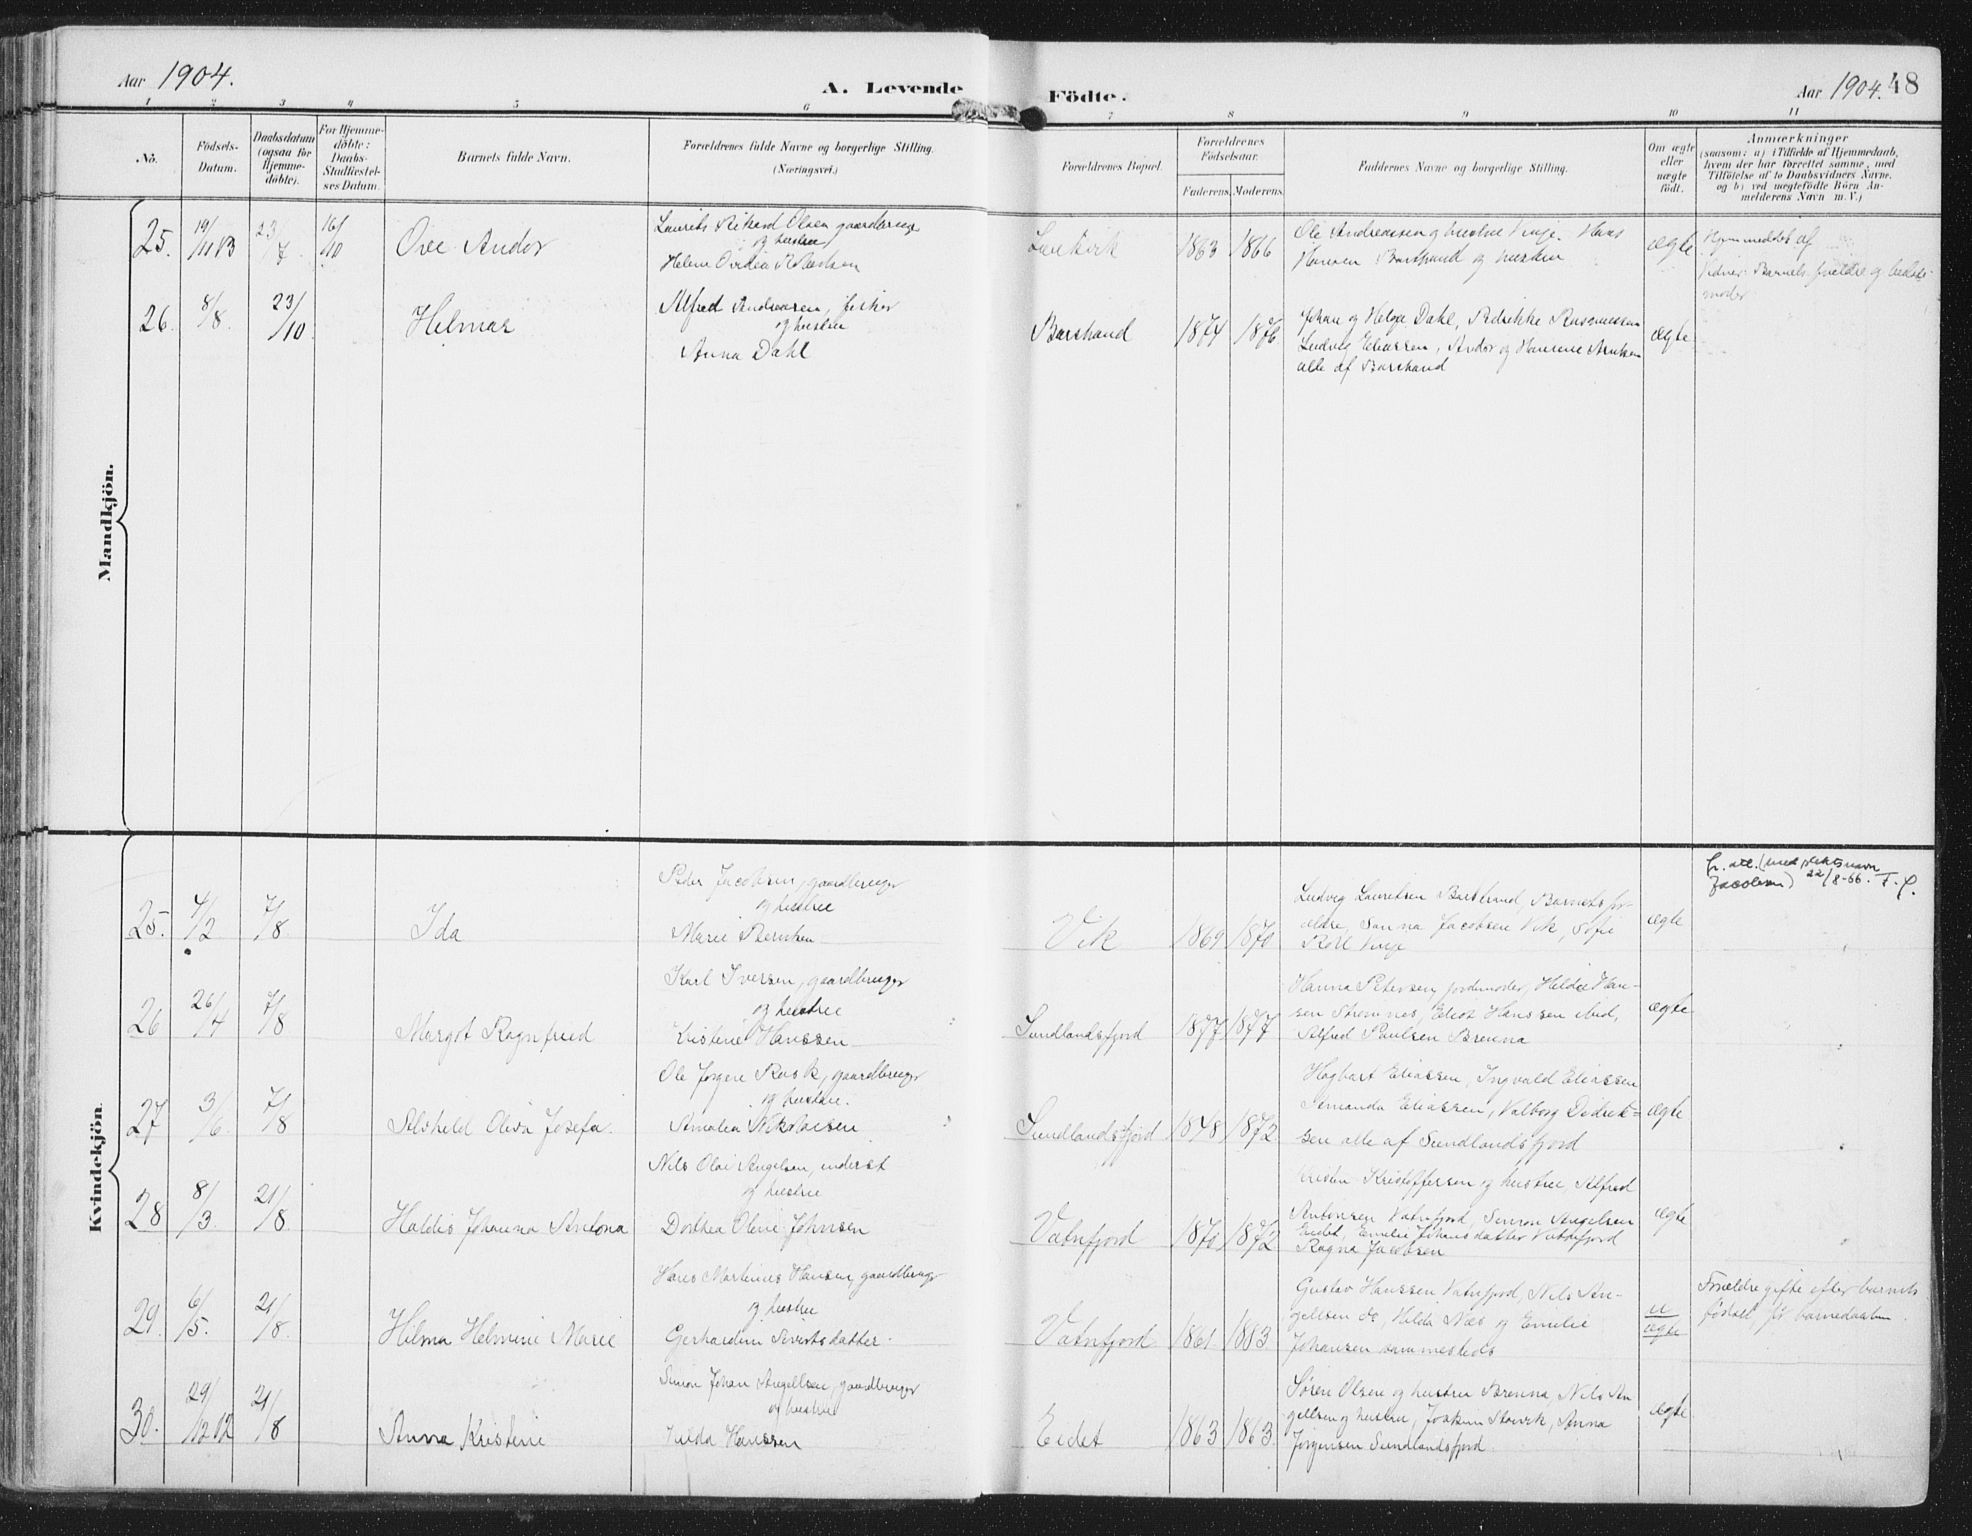 Aar 1904.
A. Levende Födte.
Aar 1904. 48
1 2 3 4 5 6 7 8 9 10 11
No.
Födsels-Datum.
Daabsdatum (ogsaa for Hjemme-döbte).
For Hjemme-döbte: Daabs-Stadfæstel-ses Datum.
Barnets fulde Navn.
Forældrenes fulde Navne og borgerlige Stilling. (Næringsvei.)
Forældrenes Bopæl.
Forældrenes Födselsaar.
Faderens. Moderens.
Faddernes Navne og borgerlige Stilling.
Om ægte eller uægte födt.
Anmærkninger
(saasom: a) i Tilfælde af Hjemmedaab,
hvem der har forrettet samme, med
Tilföielse af to Daabsvidners Navne,
og b) ved uægtefödte Börn An-
melderens Navn m. V.)
Mandkjön.
25. 19/11 03 23/7 16/10 Ove Andor
Laurits Rikard Olsen gaardbruger
og hustru
Helene
1863 1866
Ole Andreassen og hustru Vinje. Hans
Hansen Barstrand og hustru
ægte
Hjemmedøbt af
Vidner: Barnets forældre og bedste-
moder
26. 8/8. 23/10 Helmar
Alfred Andreassen, fisker
og hustru
Anna Dahl
Barstrand 1874 1876
Johan og Helga Dahl, Fredrikke Rasmussen
Ludvig Eliassen, Andor og Hansine
alle af Barstrand
ægte
Kvindekjön.
25. 4/2 7/8 Ida
Peder Jacobsen, gaardbruger
og hustru
Marie Berntsen
Vik 1869 1870
Ludvig Lauritsen Barstrand, Barnets for-
ældre, Sanna Jacobsen Vik, Sofie
Vinje
ægte
fr. att. (med slektsnavn
Jacobsen) 22/8-66.
26 26/4 7/8 Margot Ragnfred
Karl Iversen, gaardbruger
og hustru
Kristine Hanssen
Sundlandsfjord 1877 1877
Hanna Petersen, jordmoder, Hilda Han-
sen Sørennes, Eliot Hanssen ibid,
Alfred Paulsen Brenna
ægte
27 3/6 7/8 Alvhild Oliva Josefa.
Ole Jørgen Rask, gaardbruger
og hustru.
Amalia Nikolaisen
Sundlandsfjord 1848 1872
Hagbart Eliassen, Ingvald Eliassen
Amanda Eliassen, Valborg Didrik-
sen alle af Sundlandsfjord
ægte
28 8/3 21/8 Haldis Johanna Antona
Nils Olai Angelsen, inderst
og hustru
Dorthea Oline Johnsen
Vatnfjord 1870 1872
Kristen Kristoffersen og hustru Alfred
Antonsen Vatnfjord, Simon Angelsen
Eidet, Emelie Johansdatter Vatnfjord
Ragna Jacobsen
ægte
29. 6/5. 21/8. Helma Helmine Marie
Hans Martinus Hansen, gaardbruger
og hustru
Gerhardine Sivertsdatter
Vatnfjord 1861 1883
Gustav Hanssen Vatnfjord, Nils An-
gellsen do, Hilda Næs og Emelie
Johansen sammesteds
u
ægte
Forældre gifte efter barnets
fødsel, før barnedaaben.
30. 29/12 02 21/8 Anna Kristine
Simon Johan Angellsen, gaardbruger
og hustru
Hilda Hanssen
Eidet 1863 1863.
Søren Olsen og hustru Brenna, Nils An-
gellsen og hustru, Joakim Storvik, Anna
Jørgensen Sundlandsfjord
ægte